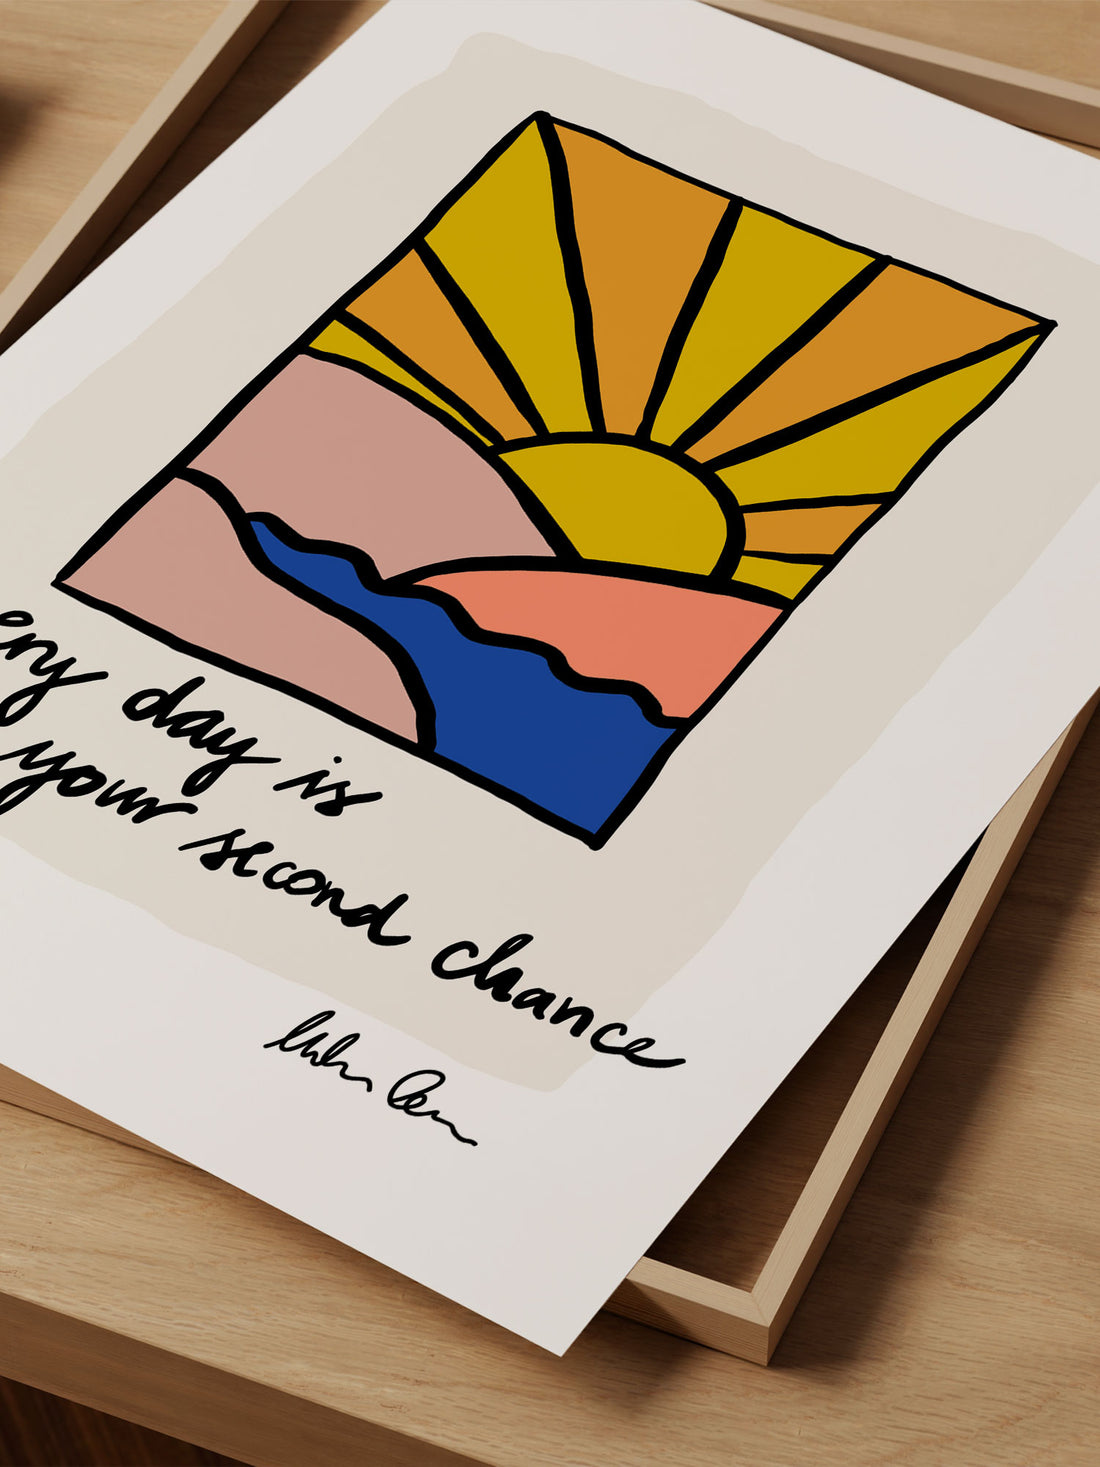 ery day is
your second chance